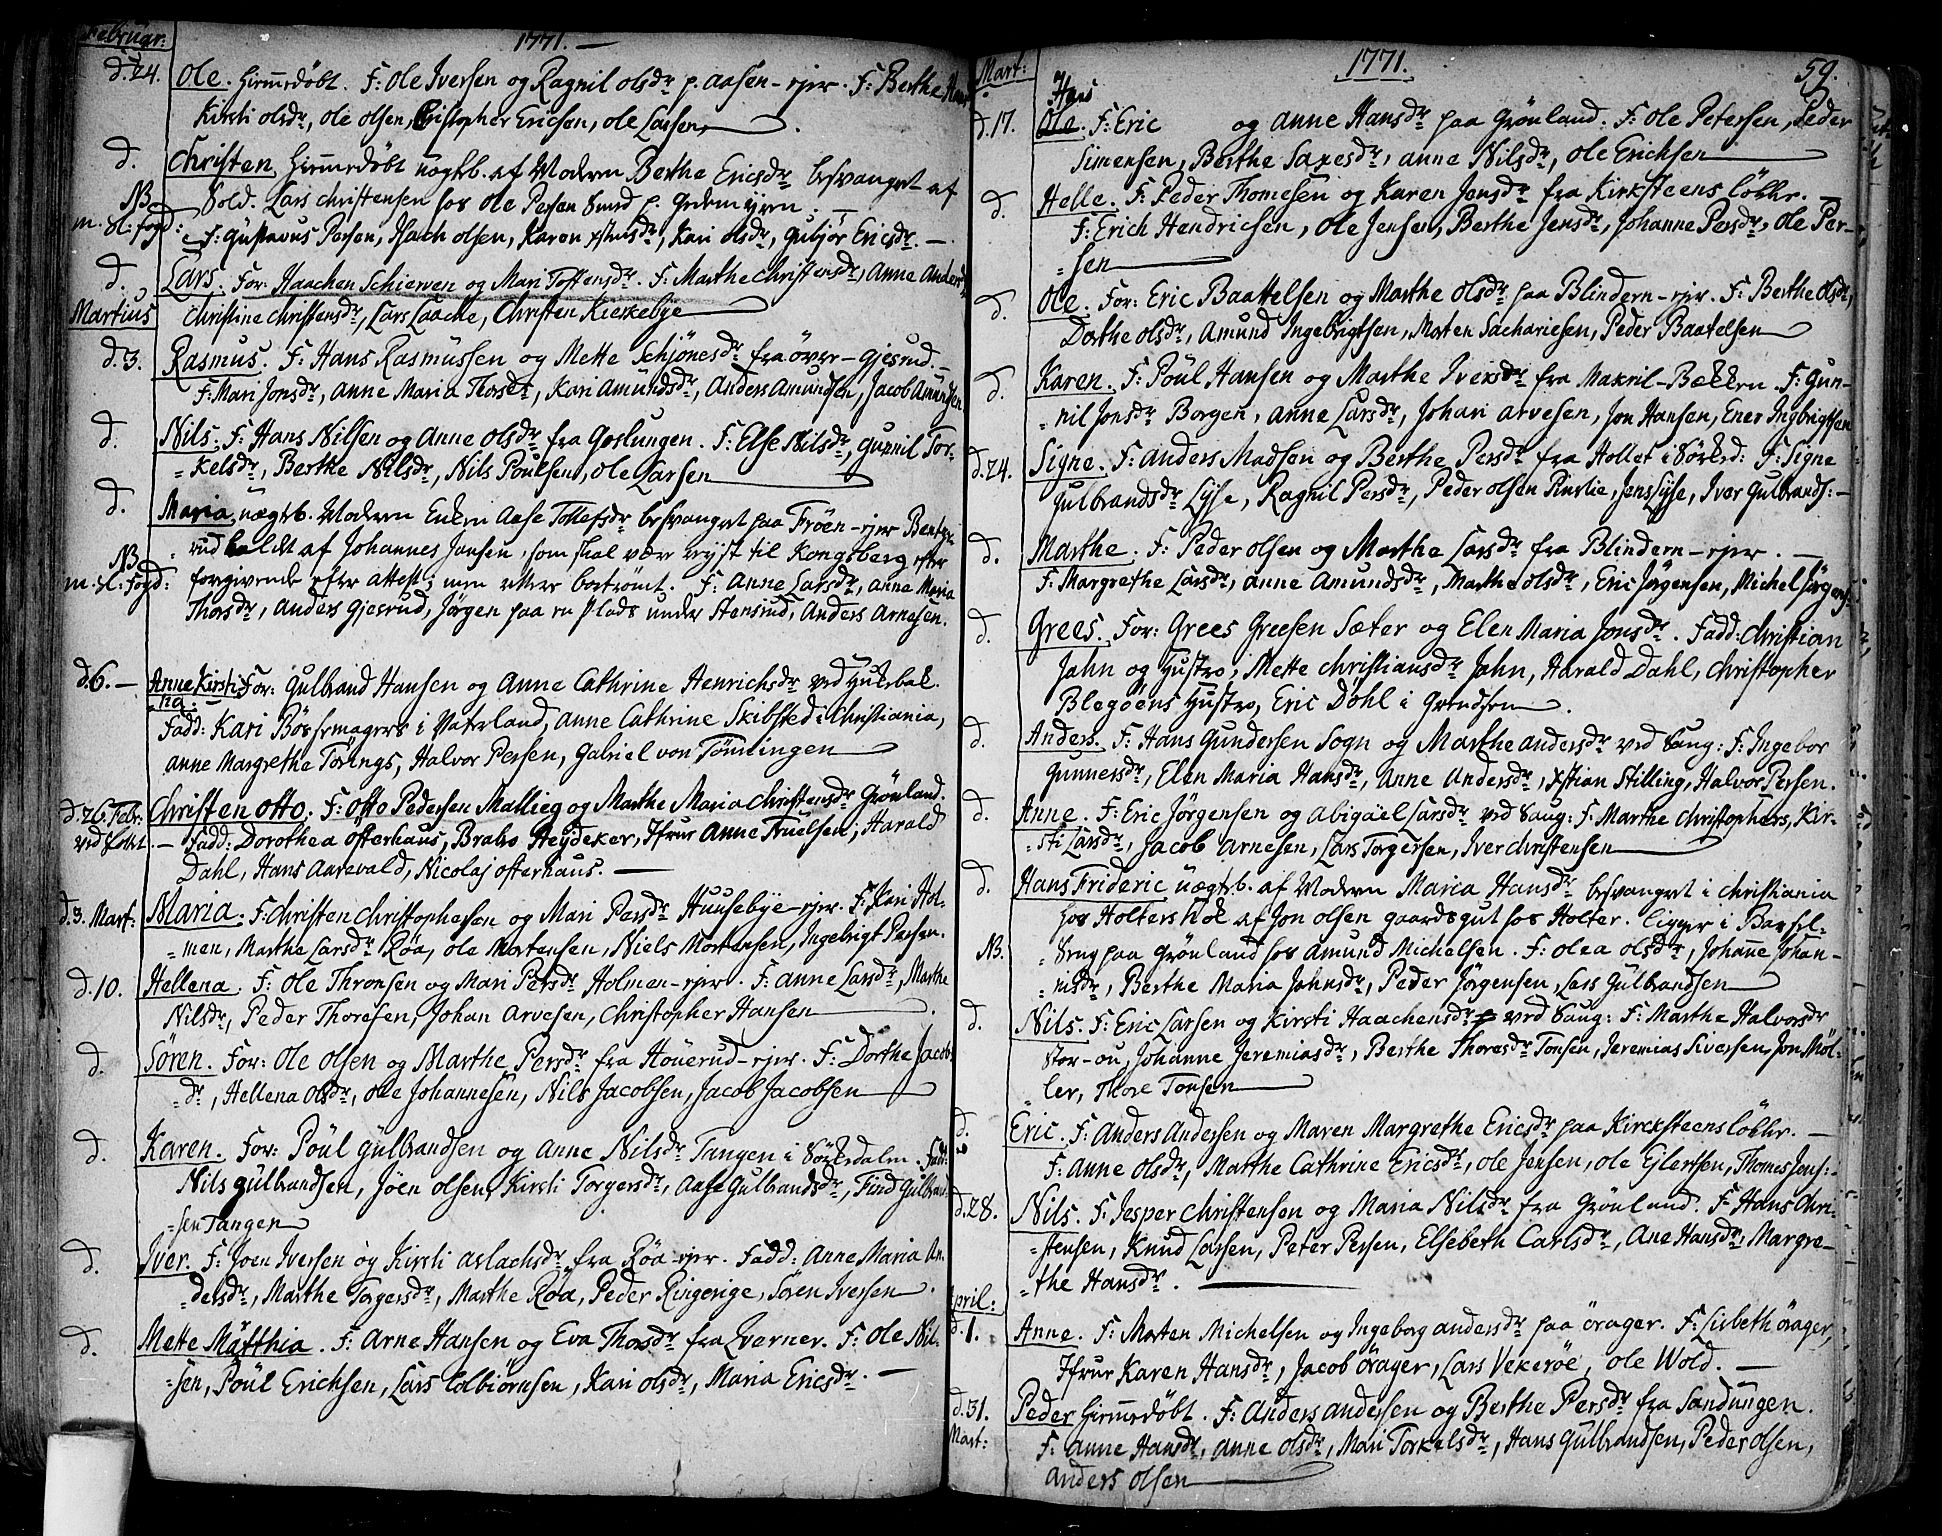 Februar:
1771. —
d. 24. Ole. hiemedøbt. F: Ole Iversen og Ragnil olsdr p. aasen-ejer. F: Berthe
Kirsti olsdr, ole olsen, Cristopher Ericsen, ole Larsen
d. Christen hiemedøbt uægtb. af Moderen Berthe Ericsdr besvangret af
NB Sold. Lars christensen hos Ole Persen Sund p.
m. sl: fogd: F: Gustavus Persen, Isach olsen, Karen xstensdr, Kari olsdr, Gubjør Ericsdr. —
d. Lars. For: Haachen Schierven og Mari Toftensdr. F: Marthe Christensdr, Anne Andersdr
Martius Christine christensdr, Lars Laache, Christen Kierkebye
d. 3. Rasmus. F: Hans Rasmussen og Mette Schjönesdr fra över-gjesrud. —
F: Mari Jonsdr, Anne Maria Thorsdr, Kari Amundsdr, Anders Amundsen, Jacob Amundsen
d. Nils. F: Hans Nilsen og Anne olsdr fra Goslungen. F: Else Nilsdr, Gunnil Tor-
kelsdr, Berthe Nilsdr, Nils Poulsen, ole Larsen
d. Maria uægtb. Moderen Enken Aase Tollefsdr besvangret paa Fröen-ejer
rud af Johannes Jansen, som skal være rejst til Kongsberg efter
NB forgivende efter attest; men ellers bortrömt. F: Anne Larsdr, Anne Maria
m. sl: Fogd: Thorsdr, Anders Gjesrud, Jörgen paa en Plads under Stensrud, Anders Arnesen.
d. 6. — Anne Kirsti- For: Gulbrand Hansen og Anne Cathrine Henrichsdr ved
na. Fadd: Kari Bössemagers i Vaterland, Anne Cathrine Skibsted i Christiania,
anne Margrethe Törings, Halvor Persen, Gabriel von Tömingen
d. 26 Febr: Christen Otto. F: Otto Pedersen Malling og Marthe Maria Christensdr Grönland.
ved — Fadd: Dorothea Osterhaus, Heydeker, Jfrur Anne Truelsen, Harald
Dahl, Hans Aarevald, Nicolaj Osterhaus. —
d. 3. Mart: Maria. F: Christen Christophersen og Mari Persdr Huusebye-ejer. F: Kari Hol-
men, Marthe Larsdr Röa, ole Mortensen, Niels Mortensen, Ingebrigt Persen.
d. 10. Hellena. F: Ole Thronsen og Mari Persdr Holmen-ejer. F: Anne Larsdr, Marthe
Nilsdr, Peder Thoresen, Johan Arvesen, Christopher Hansen
d. Sören. For: Ole olsen og Marthe Persdr fra Houerud-ejer. F: Dorthe Jacobs
dr, Hellena Olsdr, ole Johannesen, Nils Jacobsen, Jacob Jacobsen
d. Karen. For: Poul Gulbrandsen og Anne Nilsdr Tangen i Sörkedalen. Fad:
Nils gulbrandsen, Jöen olsen, Kirsti Torgersdr, Aase Gulbrandsdr, Find Gulbrand
sen Tangen
d. Iver. F: Joen Iversen og Kirsti aslachsdr fra Röa-ejer. Fadd: Anne Maria An-
dersdr, Marthe Torgersdr, Marthe Röa, Peder Ringerige, Sören Iversen.
d. Mette Matthia. F: Arne Hansen og Eva Thorsdr fra Qverner. F: Ole Nil-
sen, Poul Erichsen, Lars Colbiörnsen, Kari olsdr, Maria Ericsdr. —
1771.
59.
Mart:
Hans
d. 17. Ole. F: Eric og Anne Hansdr paa Grönland. F: Ole Petersen, Peder
Simensen, Berthe Saxesdr, Anne Nilsdr, Ole Erichsen
d. Helle. F: Peder Thomesen og Karen Jensdr fra Kirksteens löbbr. —
F: Erich Hendricsen, Ole Jensen, Berthe Jensdr, Johanne Persdr, Ole Per-
sen
d. Ole. For: Eric Baattelsen og Marthe Olsdr paa Blindern-ejer. F: Berthe Olsdr,
Dorthe olsdr, Amund Ingebrigtsen, Morten Sachariesen, Peder Baatelsen
d. Karen. F: Poul Hansen og Marthe Iversdr fra Makril-Bækken. F: Gun-
nil Jonsdr Borgen, Anne Larsdr, Johan Arvesen, Jon Hansen, Ener Ingbrigtsen
d. 24. Signe. F: Anders Madsen og Berthe Persdr fra Hollet i Sörkd: F: Signe
Gulbrandsdr Lyse, Ragnil Persdr, Peder Olsen Pinslie, Jens Lyse, Iver Gulbrands: —
d. Marthe. F: Peder olsen og Marthe Larsdr fra Blindern-ejer. —
F: Margrethe Larsdr, Anne Amundsdr, Marthe olsdr, Eric Jörgensen, Michel Jörgens:
d. Grees. For: Grees Greesen Sæter og Elen Maria Jonsdr. Fadd: Christian
Jahn og Hustro, Mette Christiansdr Jahn, Harald Dahl, Christopher
Blegöens Hustro, Eric Döhl i Grendsen
d. Anders. F: Hans Gundersen Sogn og Marthe Andersdr ved Saug: F: Ingebor
Gunnersdr, Elen Maria Hansdr, Anne Andersdr, Xstian Stilling, Halvor Persen.
d. Anne. F: Eric Jörgensen og Abigäel Larsdr ved Saug: F: Marthe Christophers, Kir-
sti Larsdr, Jacob Arnesen, Lars Torgersen, Iver Christensen
d. Hans Frideric uægtb. af Moderen Maria Hansdr besvangret i Christiania
hos Holters af Jon Olsen gaardsgut hos Holter. ligger i Barsel-
NB. Seng paa Grönland hos Amund Michelsen. F: Olea Olsdr, Johanne Johan-
nisdr, Berthe Maria Johnsdr, Peder Jörgensen, Lars Gulbrandsen
d. Nils. F: Eric Larsen og Kirsti Haachensdr ved Saug: F: Marthe Halvorsdr
Stor-ou, Johanne Jeremiasdr, Berthe Thoresdr Tonsen, Jeremias Siversen, Jon Möl-
ler, Thore Tonsen
d. Eric. F: Anders Andersen og Maren Margrethe Ericsdr paa Kircksteens löbbr. —
F: Anne Olsdr, Marthe Cathrine Ericsdr, Ole Jensen, Ole Glertsen, Thomes Jens:
d. 28. Nils. F: Jesper Christensen og Maria Nilsdr fra Grönland. F: Hans Chri-
stensen, Knud Larsen, Peter Persen, Elsebeth Carlsdr, Ane Hansdr, Margre-
the Hansdr.
April:
d. 1. Anne. F: Morten Michelsen og Ingeborg Andersdr paa örager. F: Lisbeth örager,
Jfrur Karen Hansdr, Jacob örager, Lars Vekeröe, Ole Wold. —
d. 31. Peder hiemedøbt. F: Anders Andersen og Berthe Persdr fra Sandungen.
Mart: F: Anne Hansdr, Anne Olsdr, Mari Torkelsdr, Hans Gulbrandsen, Peder olsen,
Anders Olsen